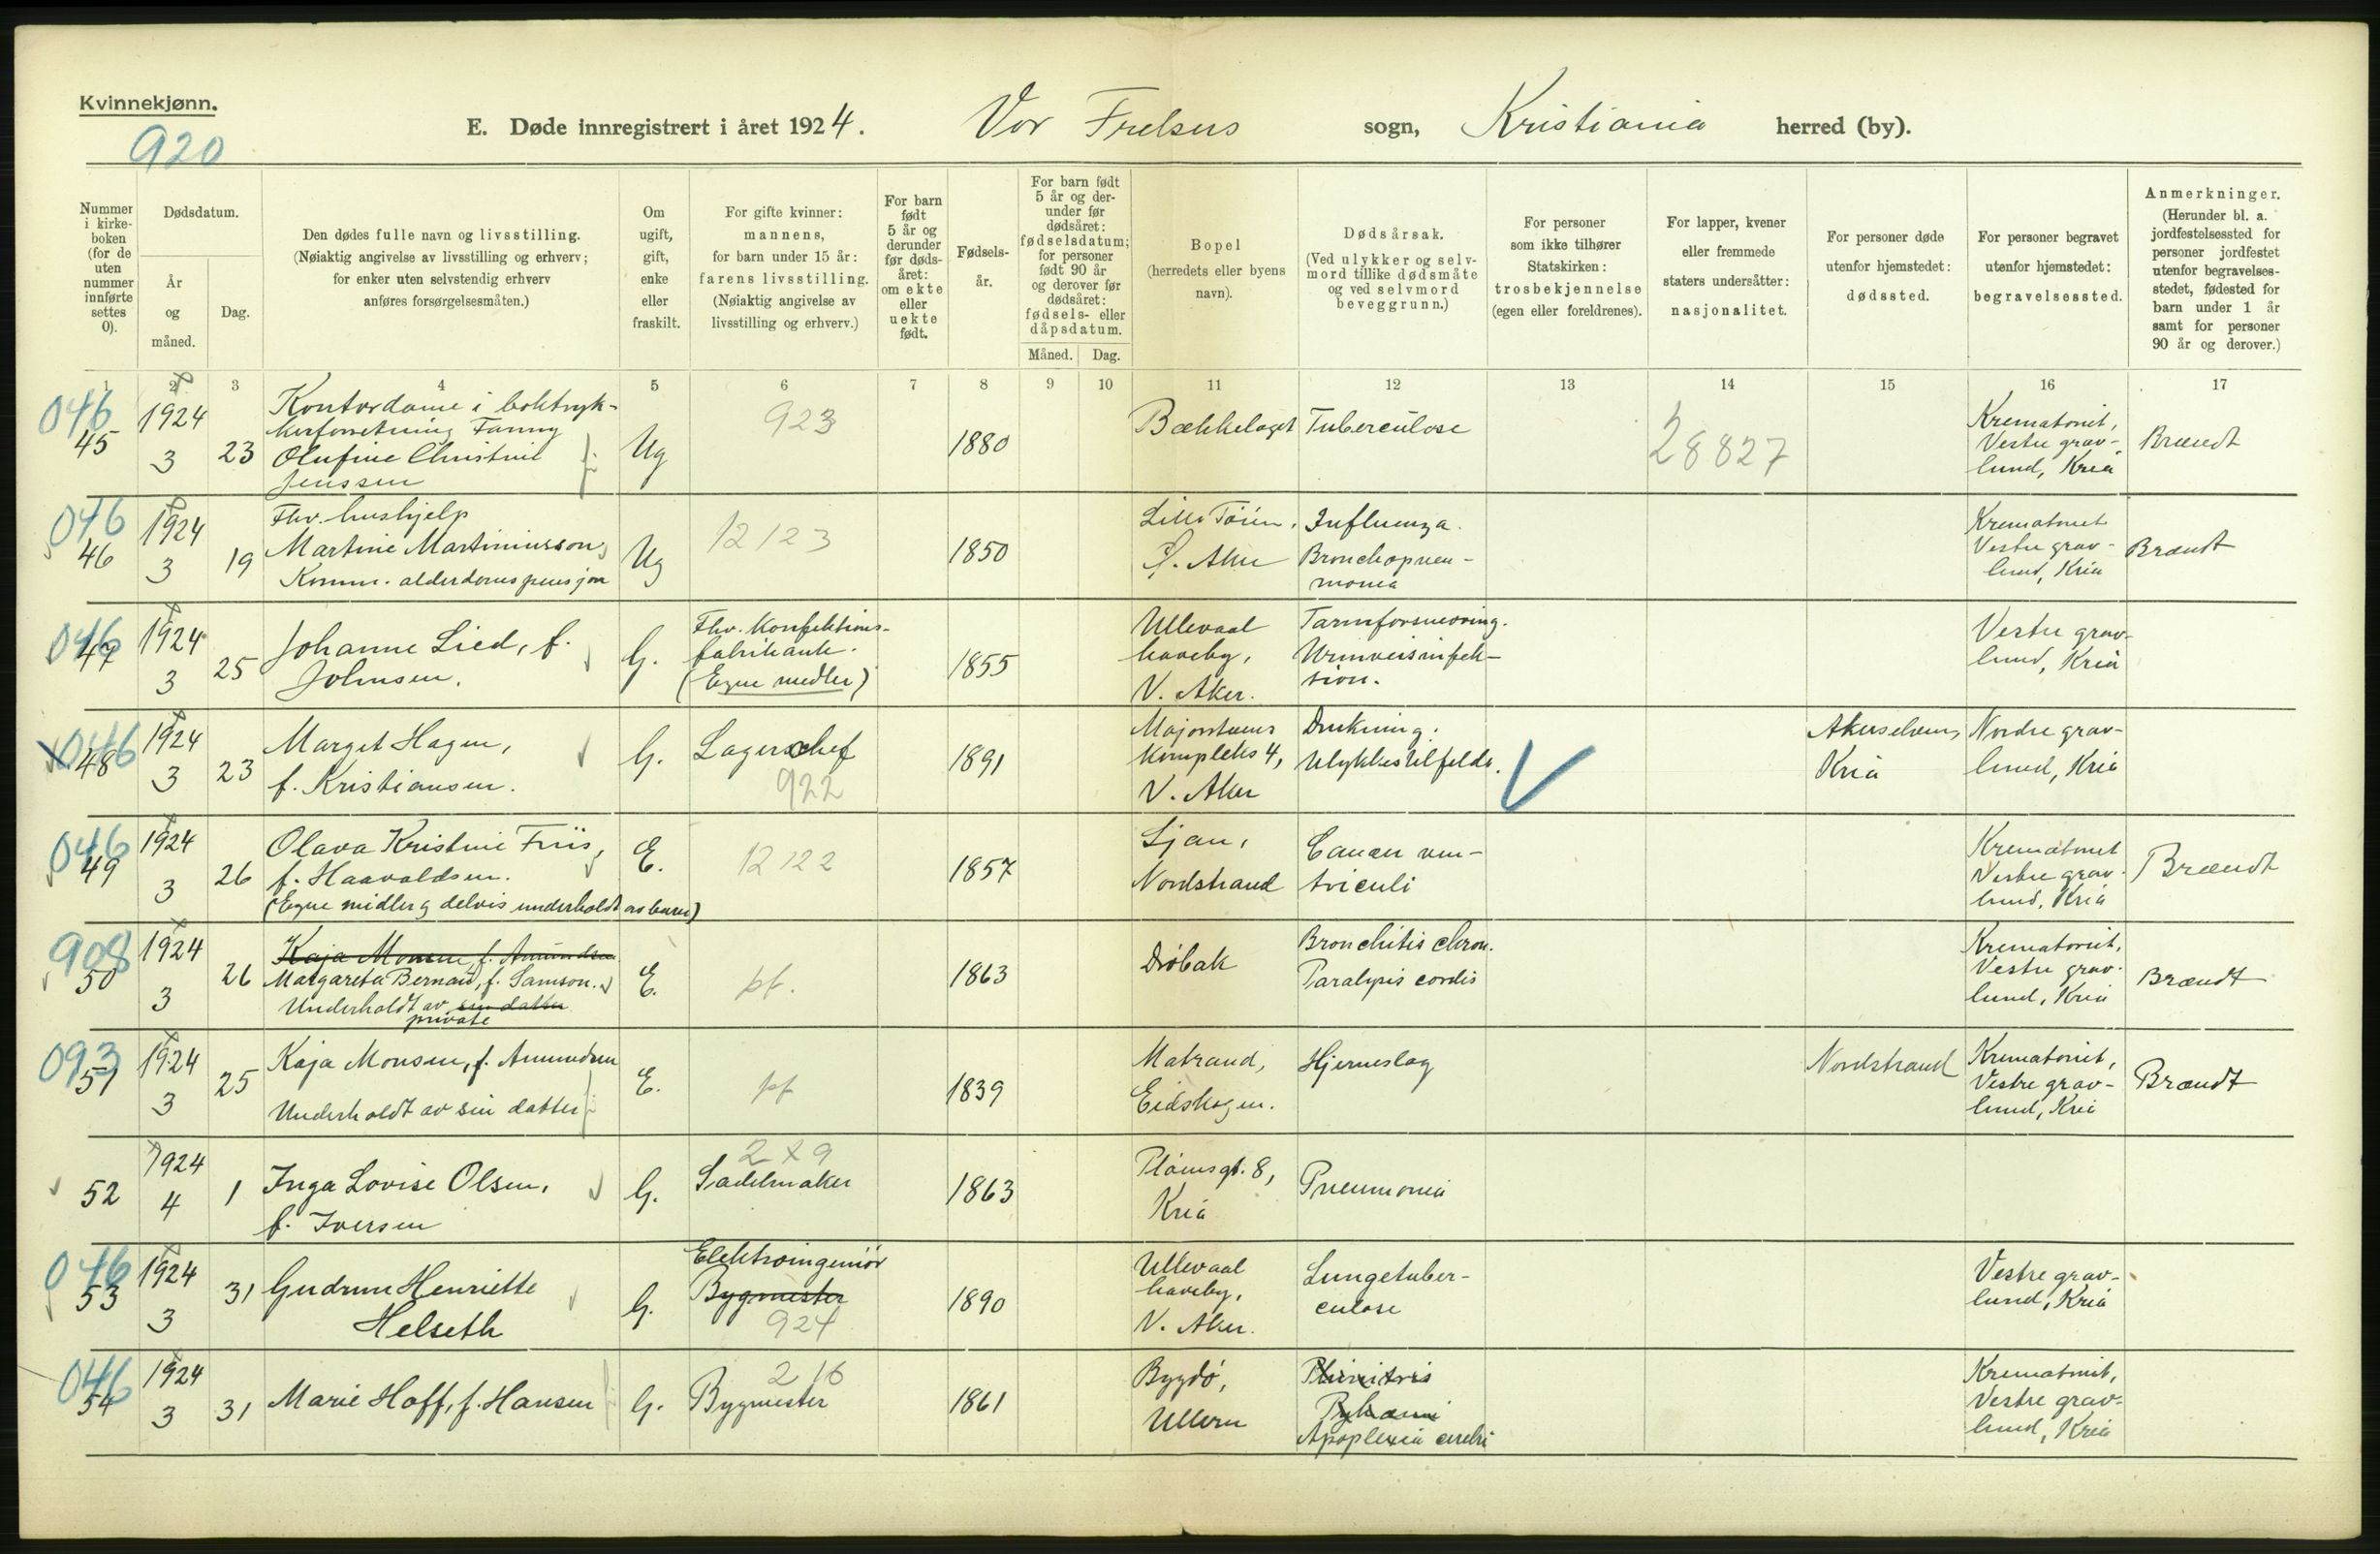 Kvinnekjønn.
920
E. Døde innregistrert i året 1924. Vor Frelsers sogn, Kristiania herred (by).
Nummer
i kirke-
boken
(for de
uten
nummer
innførte
settes
0).
Dødsdatum.
År
og
måned.
Dag.
Den dødes fulle navn og livsstilling.
(Nøiaktig angivelse av livsstilling og erhverv;
for enker uten selvstendig erhverv
anføres forsørgelsesmåten.)
Om
ugift,
gift,
enke
eller
fraskilt.
For gifte kvinner:
mannens,
for barn under 15 år:
farens livsstilling.
(Nøiaktig angivelse av
livsstilling og erhverv.)
For barn
født
5 år og
derunder
før døds-
året:
om ekte
eller
uekte
født.
Fødsels-
år.
For barn født
5 år og der-
under før
dødsåret:
fødselsdatum;
for personer
født 90 år
og derover før
dødsåret:
fødsels- eller
dåpsdatum.
Måned. Dag.
Bopel
(herredets eller byens
navn).
Dødsårsak.
(Ved ulykker og selv-
mord tillike dødsmåte
og ved selvmord
beveggrunn.)
For personer
som ikke tilhører
Statskirken:
trosbekjennelse
(egen eller foreldrenes).
For lapper, kvener
eller fremmede
staters undersåtter:
nasjonalitet.
For personer døde
utenfor hjemstedet:
dødssted.
For personer begravet
utenfor hjemstedet:
begravelsessted.
Anmerkninger.
(Herunder bl. a.
jordfestelsessted for
personer jordfestet
utenfor begravelses-
stedet, fødested for
barn under 1 år
samt for personer
90 år og derover.)
1 2 3 4 5 6 7 8 9 10 11 12 13 14 15 16 17
046
45
1924
3
23
Kontordame i boktryk-
kerforretning Fanny
Olufine Christine
Jenssen
Ug
923
1880
Bækkelaget
Tuberculose
28827
Krematoriet,
Vestre grav-
lund, Kria
Brændt
046
46
1924
3
19
Fhv. hushjelp
Martine Martiniussen,
Komm. alderdomspensjon
Ug
12123
1850
Lille Tøien,
Ø. Aker
Influenza.
Bronchopneu-
monia
Krematoriet
Vestre grav-
lund, Kria
Brændt
046
47
1924
3
25
Johanne Lied, f.
Johnsen.
G.
Fhv. Konfektions-
fabrikant.
(Egne midler)
1855
Ullevaal
haveby,
V. Aker.
Tarmforsnevring.
Urinveisinfek-
sion.
Vestre grav-
lund, Kria
046
48
1924
3
23
Margit Hagen,
f. Kristiansen.
G.
Lagerschef
922
1891
Majorstuens
kompleks 4,
V. Aker
Drukning.
Ulykkestilfelde.
Akerselven,
Kria
Nordre grav-
lund, Kria
046
49
1924
3
26
Olava Kristine Friis,
f. Haavaldsen.
(Egne midler og delvis underholdt av barn)
E.
12122
1857
Ljan,
Nordstrand
Cancer ven-
triculi
Krematoriet
Vestre grav-
lund, Kria
Brændt
908
50
1924
3
26
Kaja Monsen, f. Amundsen
Margareta Bernard, f. Samson.
Underholdt av sin datter
private
E.
pf.
1863
Drøbak
Bronchitis chron.
Paralysis cordis
Krematoriet,
Vestre grav-
lund, Kria
Brændt
093
51
1924
3
25
Kaja Monsen, f. Amundsen
Underholdt av sin datter
E.
pf
1839
Matrand,
Eidskogen.
Hjerneslag
Nordstrand
Krematoriet,
Vestre grav-
lund, Kria
Brændt
52
1924
4
1
Inga Lovise Olsen,
f. Iversen
G.
2 x 9
Sadelmaker
1863
Pløensgt. 8,
Kria
Pneumonia
046
53
1924
3
31
Gudrun Henriette
Helseth
G.
Elektroingeniør
Bygmester
924
1890
Ullevaal
haveby,
V. Aker.
Lungetuber-
culose
Vestre grav-
lund, Kria
046
54
1924
3
31
Marie Hoff, f. Hansen
G.
216
Bygmester
1861
Bygdø,
Ullern
Apoplexia cerebri
Krematoriet,
Vestre grav-
lund, Kria